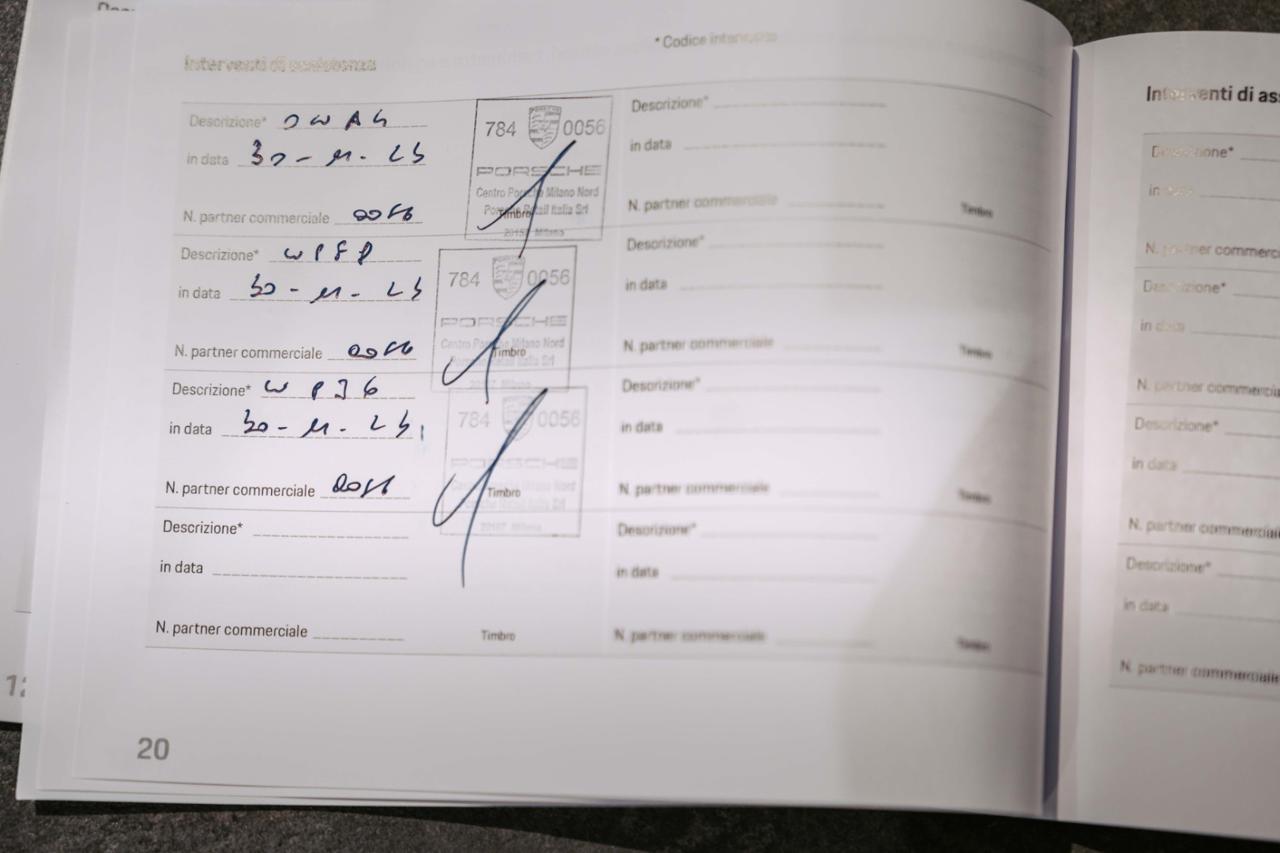 * Codice intervento
Interventi di assistenza
Descrizione*
in data 30-11-23
N. partner commerciale 0056
784 0056
PORSCHE
Centro Porsche Milano Nord
Porsche Retail Italia Srl
Timbro
20157 Milano
Descrizione*
in data 30-11-23
N. partner commerciale 0056
784 0056
PORSCHE
Centro Porsche Milano Nord
Porsche Retail Italia Srl
Timbro
20157 Milano
Descrizione*
in data 30-11-23
N. partner commerciale 0056
784 0056
PORSCHE
Centro Porsche Milano Nord
Porsche Retail Italia Srl
Timbro
20157 Milano
Descrizione*
in data
N. partner commerciale
Timbro
Descrizione*
in data
N. partner commerciale
Timbro
Descrizione*
in data
N. partner commerciale
Timbro
Descrizione*
in data
N. partner commerciale
Timbro
Descrizione*
in data
N. partner commerciale
Timbro
20
Interventi di ass
Descrizione*
in data
N. partner commerc
Descrizione*
in data
N. partner commercia
Descrizione*
in data
N. partner commerciale
Descrizione*
in data
N. partner commerciale